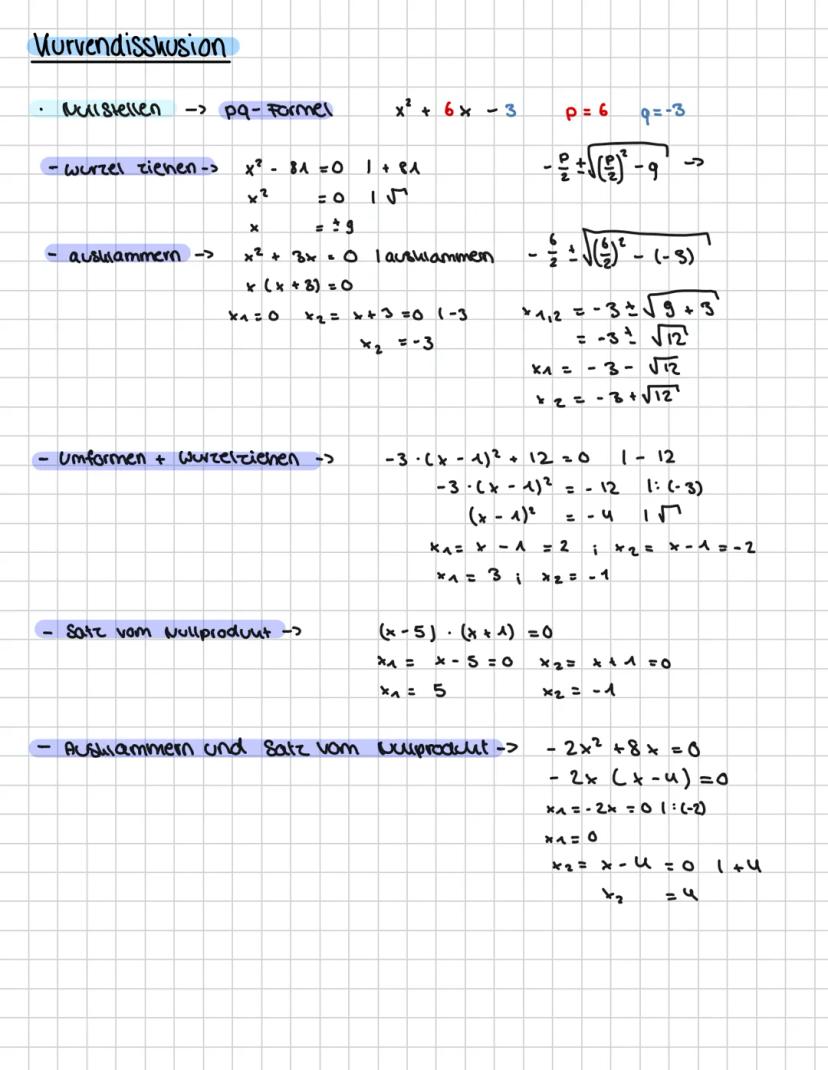 Kurvendisskusion
· Nullstellen -> pq-Formel x² + 6x - 3 p = 6 q = -3
- wurzel ziehen -> x² - 81 = 0 | + 81
x² = 0 | √
x = ± 9
-p/2 ± √((p/2)² - q) ->
- ausklammern -> x² + 3x = 0 | ausklammern
x (x + 3) = 0
x1 = 0 x2 = x + 3 = 0 | -3
x2 = -3
-6/2 ± √((6/2)² - (-3))
x1,2 = -3 ± √(9 + 3)
= -3 ± √12
x1 = -3 - √12
x2 = -3 + √12
- Umformen + Wurzelziehen -> -3 · (x - 1)² + 12 = 0 | - 12
-3 · (x - 1)² = -12 | : (-3)
(x - 1)² = -4 | √
x1 = x - 1 = 2 ; x2 = x - 1 = -2
x1 = 3 ; x2 = -1
- Satz vom Nullprodukt -> (x - 5) · (x + 1) = 0
x1 = x - 5 = 0 x2 = x + 1 = 0
x1 = 5 x2 = -1
- Ausklammern und Satz vom Nullprodukt -> - 2x² + 8x = 0
- 2x (x - 4) = 0
x1 = -2x = 0 | : (-2)
x1 = 0
x2 = x - 4 = 0 | + 4
x2 = 4